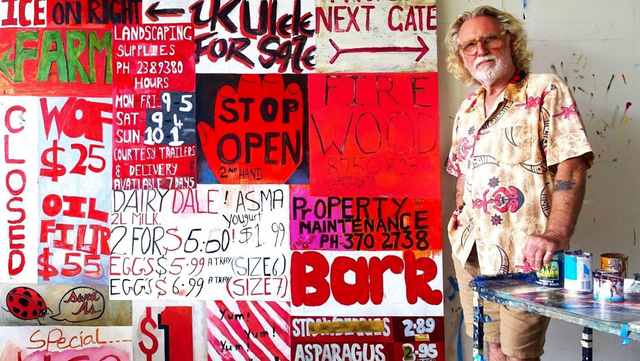 ICE ON RIGHT
UKulele
FOR SaLe
NEXT GATE
FARM
LANDSCAPING
SUPPLIES
PH 2389380
HOURS
MON FRI 9 5
SAT 9 4
SUN 10 1
COURTESY TRAILERS
& DELIVERY
AVAILABLE 7 DAYS
STOP
OPEN
2ND HAND
FIRE
WOOD
CLOSED
WOF
$25
OIL
FILTR
$55
DAIRY DALE! ASMA
2L MILK.
2 FOR $5.50!
Yougurt
$1.99
EGGS $5.99 A TRAY (SIZE 6)
EGGS $6.99 A TRAY (SIZE 7)
PROPERTY
MAINTENANCE
PH-370 2738
Bark
Special....
$1
Yum!
Yum!
Yum!
STRAWBERRIES 2-89
ASPARAGUS 2-95